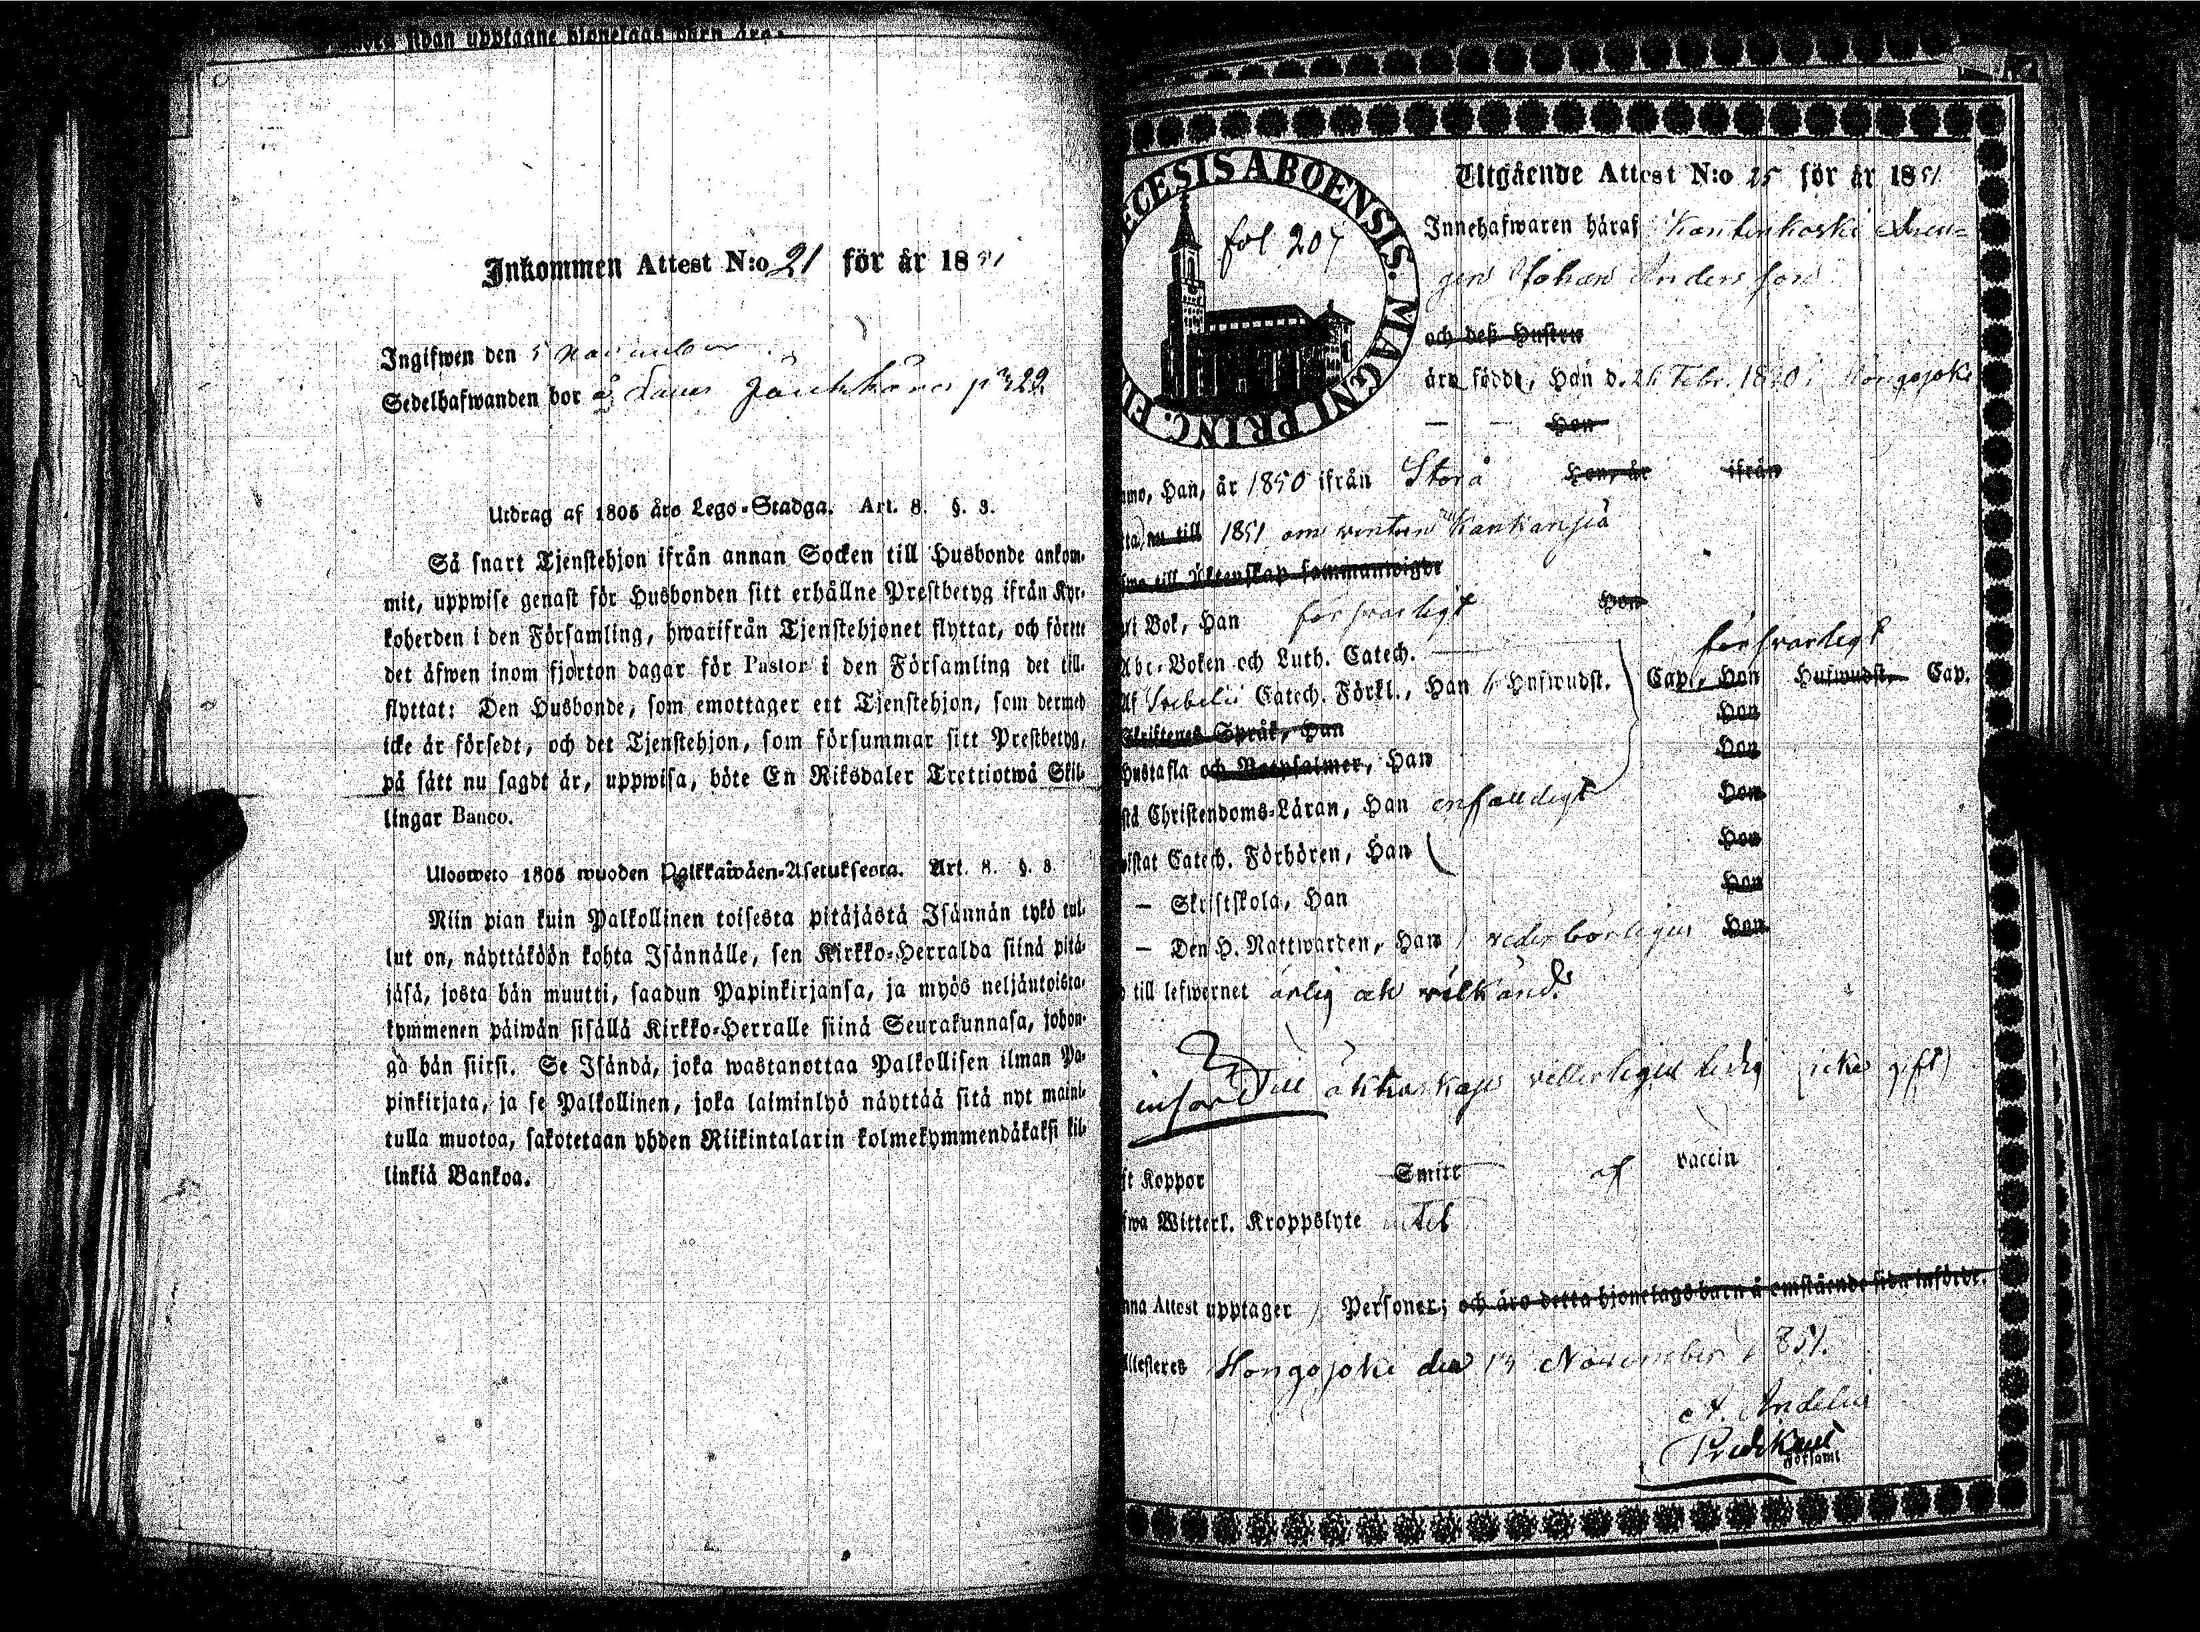 Inkommen Attest N:o 21 för år 1851
Ingifwen den 5 November
Sedelhafwanden bor å p 322
Utdrag af 1805 års Lego-Stadga. Art. 8. §. 3.
Så snart Tjenstehjon ifrån annan Socken till Husbonde ankom-
mit, uppwise genast för Husbonden sitt erhållne Prestbetyg ifrån Kyr-
koherden i den Församling, hwarifrån Tjenstehjonet flyttat, och förete
det äfwen inom fjorton dagar för Pastor i den Församling det till-
flyttat: Den Husbonde, som emottager ett Tjenstehjon, som dermed
icke är försedt, och det Tjenstehjon, som försummar sitt Prestbetyg,
på sätt nu sagdt är, uppwisa, böte En Riksdaler Trettiotwå Skil-
lingar Banco.
Ulosweto 1805 wuoden Palkkawäen-Asetuksesta. Art. 8. §. 3
Niin pian kuin Palkollinen toisesta pitäjästä Isännän tykö tul-
lut on, näyttäköön kohta Isännälle, sen Kirkko-Herralda siinä pitä-
jäsä, josta hän muutti, saadun Papinkirjansa, ja myös neljäntoista-
kymmenen päiwän sisällä Kirkko-Herralle siinä Seurakunnasa, johon-
ga hän siirsi. Se Isändä, joka wastanottaa Palkollisen ilman Pa-
pinkirjata, ja se Palkollinen, joka laiminlyö näyttää sitä nyt maini-
tulla muotoa, sakotetaan yhden Riikintalarin kolmekymmendäkaksi kil-
linkiä Bankoa.
ECESIS ABOENSIS. MAGNI PRINC. FI
fol 207
Utgående Attest N:o 25 för år 1851
Innehafwaren häraf Kantinkoski Dren-
gen Johan Andersson
och deß Hustru
äro födde, Han d. 26 Febr. 1830 i Hongojoki
— — Hon
Han, år 1850 ifrån Storå Hon, år ifrån
nu till 1851 om vintern Kankanpää
till Äktenskap sammanwigde
Bok, Han försvarligt Hon
Abc-Boken och Luth. Catech. försvarligt
Af Svebelii Catech. Förkl., Han Hufwudst. Cap., Hon Hufwudst. Cap.
Skriftenes Språk, Han Hon
Hustafla och Botpsalmer, Han Hon
Christendoms-Läran, Han enfaldigt Hon
Catech. Förhören, Han Hon
— Skriftskola, Han Hon
— Den H. Nattwarden, Han vederbörligen Hon
till lefwernet ärlig och välkänd.
införd Till äktenskap ledig (icke gift)
Koppor Smitt af vaccin
Witterl. Kroppslyte
Attest upptager 1 Personer; och äro detta hjonelags barn å omstående sida införde.
Attesteras Hongojoki den November 1851.
A. Andelin
Predikant
Församl